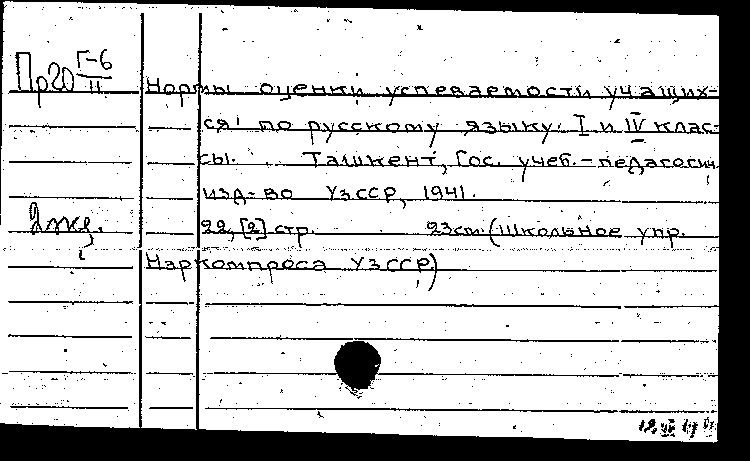 Пр20 Г-6
II
Нормы оценки успеваемости учащих-
ся по русскому языку. I и IV клас-
сы. Ташкент, Гос. учеб.-педагогич.
изд-во УзССР, 1941.
2 экз.
22, [2] стр. 23см. (Школьное упр.
Наркомпроса УзССР)